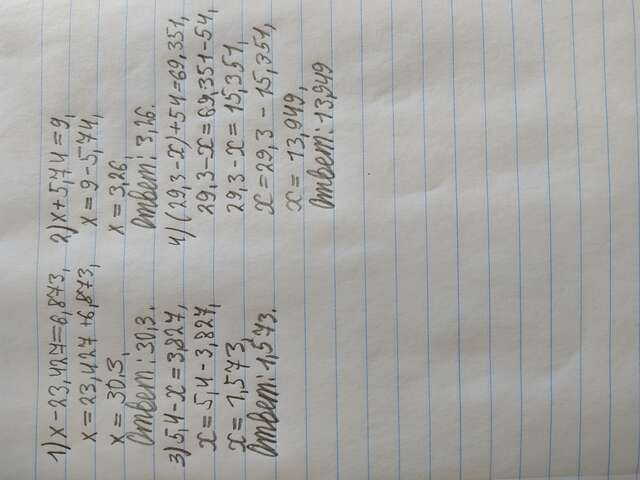 1) x - 23,427 = 6,873,
x = 23,427 + 6,873,
x = 30,3,
Ответ: 30,3.
2) x + 5,74 = 9,
x = 9 - 5,74,
x = 3,26
Ответ: 3,26.
3) 5,4 - x = 3,827,
x = 5,4 - 3,827,
x = 1,573,
Ответ: 1,573.
4) (29,3 - x) + 54 = 69,351,
29,3 - x = 69,351 - 54,
29,3 - x = 15,351,
x = 29,3 - 15,351,
x = 13,949,
Ответ: 13,949